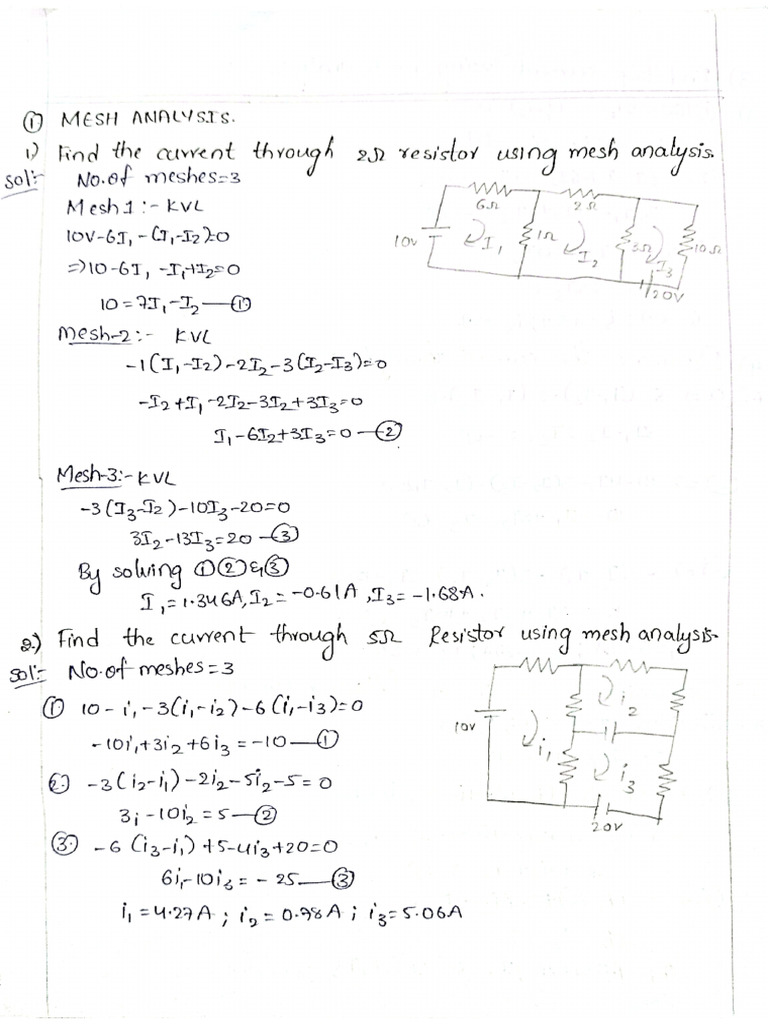 ① MESH ANALYSIS.
1) Find the current through 2Ω resistor using mesh analysis.
Sol:- No. of meshes=3
Mesh 1 :- KVL
10V-6I₁-(I₁-I₂)=0
⇒10-6I₁-I₁+I₂=0
10=7I₁-I₂—①
6Ω 2Ω
10V I₁ 1Ω I₂ 3Ω I₃ 10Ω
20V
Mesh-2:- KVL
-1(I₁-I₂)-2I₂-3(I₂-I₃)=0
-I₂+I₁-2I₂-3I₂+3I₃=0
I₁-6I₂+3I₃=0—②
Mesh-3:- KVL
-3(I₃-I₂)-10I₃-20=0
3I₂-13I₃=20—③
By solving ①②&③
I₁=1.346A, I₂=-0.61A, I₃=-1.68A.
2.) Find the current through 5Ω Resistor using mesh analysis-
Sol:- No. of meshes=3
① 10-i₁-3(i₁-i₂)-6(i₁-i₃)=0
-10i₁+3i₂+6i₃=-10—①
10V i₁ i₂ i₃
20V
②. -3(i₂-i₁)-2i₂-5i₂-5=0
3i-10i₂=5—②
③. -6(i₃-i₁)+5-4i₃+20=0
6i₁-10i₃=-25—③
i₁=4.27A; i₂=0.78A; i₃=5.06A